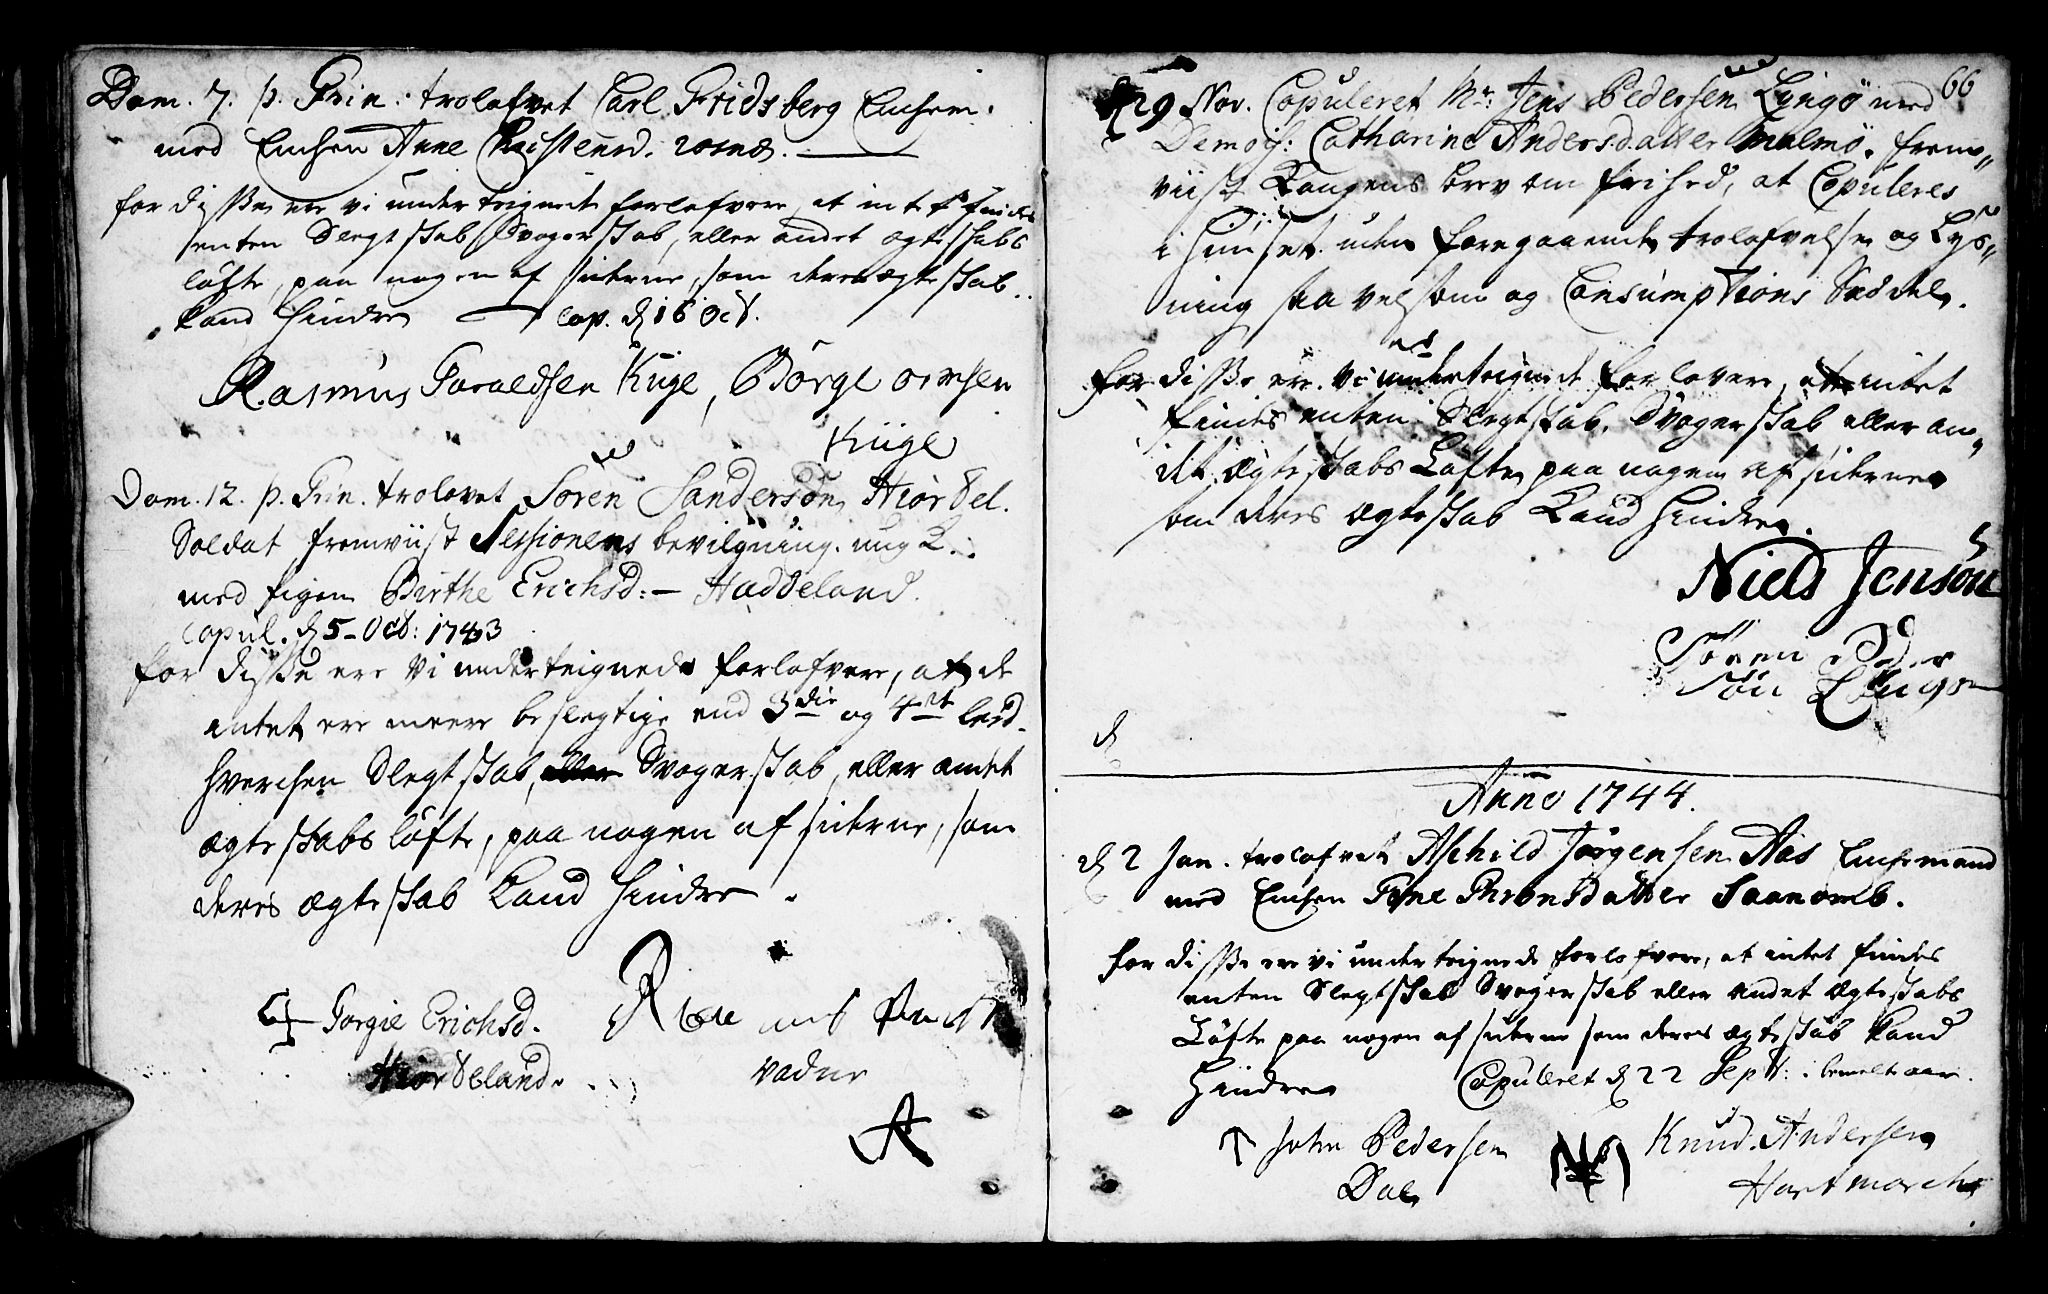 Dom. 7. p. Trin. trolofvet Carl Fridsberg Enchem.
med Enchen Anne Christensd.
for disse ere vi underteignede forlofvere, at intet findes
enten Slegtskab Svogerskab, eller andet ægteskabs
løfte, paa nogen af siderne, som deres ægteskab
kand hindre cop. d 16 Oct.
Rasmus Taraldsen Küge, Börge
Küge
Dom. 12. p. Trin. trolovet Sören Sanderson Hiördel.
Soldat, fremviist Sessionens bevilgning.
med pigen Birthe Erichsd: – Haddeland.
Copul. d 5 – Oct: 1743
for disse ere vi underteignede forlofvere, at de
intet ere meere beslegtige end 3die og 4de leed.
hverchen Slegtskab, eller Svogerskab, eller andet
ægteskabs løfte, paa nogen af siderne, som
deres ægteskab kand hindre.
Torgie Erichsd.
Hiördeland.
66
d 29 Nov. Copuleret Mr: Jens Pedersen Lyngö med
Demois: Catharine Andersdatter Malmö. frem„
viist Kongens brev om frihed, at Copuleres
i Huuset uden foregaaende trolofvelse og Lys„
ning saavelsom og Consumptions Seddel.
for disse ere vi underteignede forlovere, at intet
findes enten Slegtskab, Svogerskab eller an„
det ægteskabs Löfte paa nogen af siderne
som deres ægteskab kand hindre.
Niels Jensön
Sören Peder
Sön Lyngö
d
Anno 1744.
d 2 Jan. trolofvet Aschild Jörgensen Aas Enchemand
med Enchen Tone Thronsdatter
for disse ere vi underteignede forlofvere, at intet findes
enten Slegtskab Svogerskab eller andet ægteskabs
Löfte paa nogen af siderne som deres ægteskab kand
hindre Copuleret d 22 Sept: i bemelt aar.
John Pedersen
Dal
Knud Andersen
Hartmarch